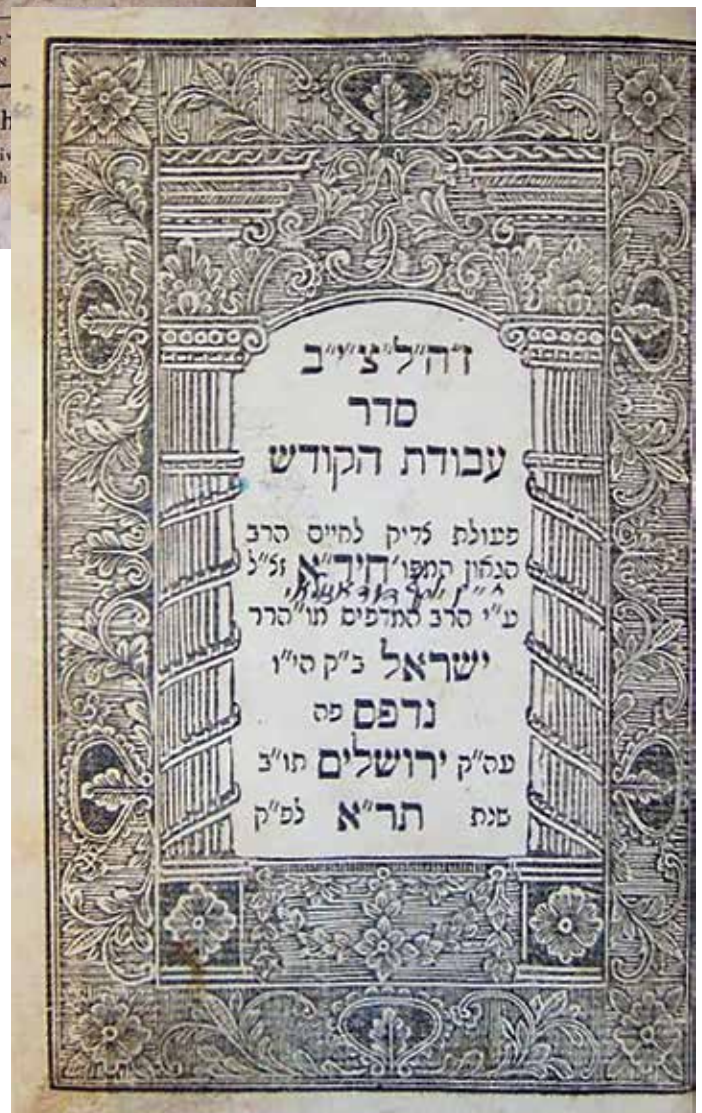 ז"ה"ל"צ"י"ב
סדר
עבודת הקודש
פעולת צדיק לחיים הרב
הגאון המפו' חיד"א זצ"ל
ע"י הרב המדפיס מו"הרר
ישראל ב"ק הי"ו
נדפס פה
עה"ק ירושלים תו"ב
שנת תר"א לפ"ק